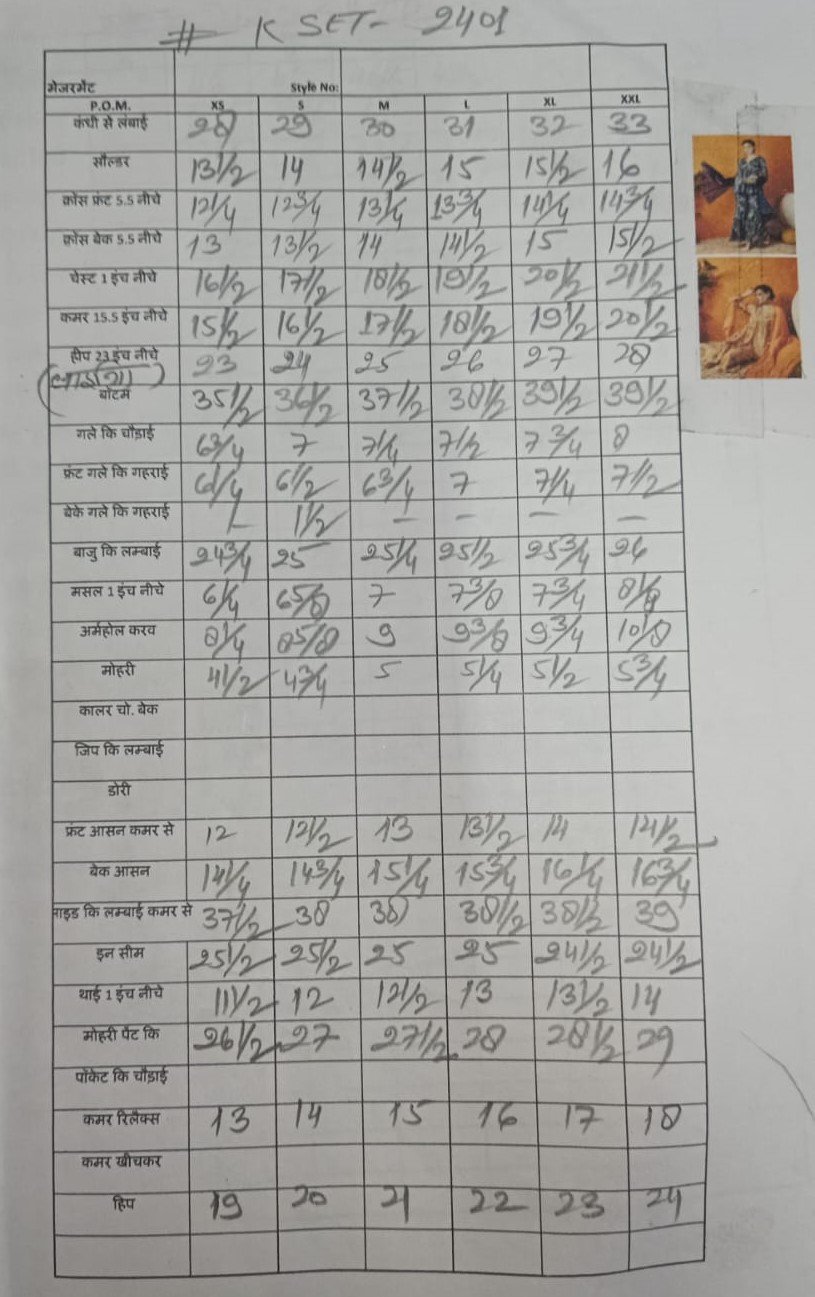 # K SET- 2401
मेजरमेंट Style No:
P.O.M. XS S M L XL XXL
कंधी से लंबाई 28 29 30 31 32 33
सौल्डर 13 1/2 14 14 1/2 15 15 1/2 16
क्रोस फ्रंट 5.5 नीचे 12 1/4 12 3/4 13 1/4 13 3/4 14 1/4 14 3/4
क्रोस बेक 5.5 नीचे 13 13 1/2 14 14 1/2 15 15 1/2
चेस्ट 1 इंच नीचे 16 1/2 17 1/2 18 1/2 19 1/2 20 1/2 21 1/2
कमर 15.5 इंच नीचे 15 1/2 16 1/2 17 1/2 18 1/2 19 1/2 20 1/2
हीप 23 इंच नीचे 23 24 25 26 27 28
बॉटम 35 1/2 36 1/2 37 1/2 38 1/2 39 1/2 39 1/2
गले कि चौड़ाई 6 3/4 7 7 1/4 7 1/2 7 3/4 8
फ्रंट गले कि गहराई 6 1/4 6 1/2 6 3/4 7 7 1/4 7 1/2
बेके गले कि गहराई – 1 1/2 – – – –
बाजु कि लम्बाई 24 3/4 25 25 1/4 25 1/2 25 3/4 26
मसल 1 इंच नीचे 6 1/4 6 5/8 7 7 3/8 7 3/4 8 1/8
अर्महोल करव 8 1/4 8 5/8 9 9 3/8 9 3/4 10 1/8
मोहरी 4 1/2 4 3/4 5 5 1/4 5 1/2 5 3/4
कालर चो. बेक
जिप कि लम्बाई
डोरी
फ्रंट आसन कमर से 12 12 1/2 13 13 1/2 14 14 1/2
बेक आसन 14 1/4 14 3/4 15 1/4 15 3/4 16 1/4 16 3/4
साइड कि लम्बाई कमर से 37 1/2 38 38 38 1/2 38 1/2 39
इन सीम 25 1/2 25 1/2 25 25 24 1/2 24 1/2
थाई 1 इंच नीचे 11 1/2 12 12 1/2 13 13 1/2 14
मोहरी पेंट कि 26 1/2 27 27 1/2 28 28 1/2 29
पॉकेट कि चौड़ाई
कमर रिलैक्स 13 14 15 16 17 18
कमर खीचकर
हिप 19 20 21 22 23 24